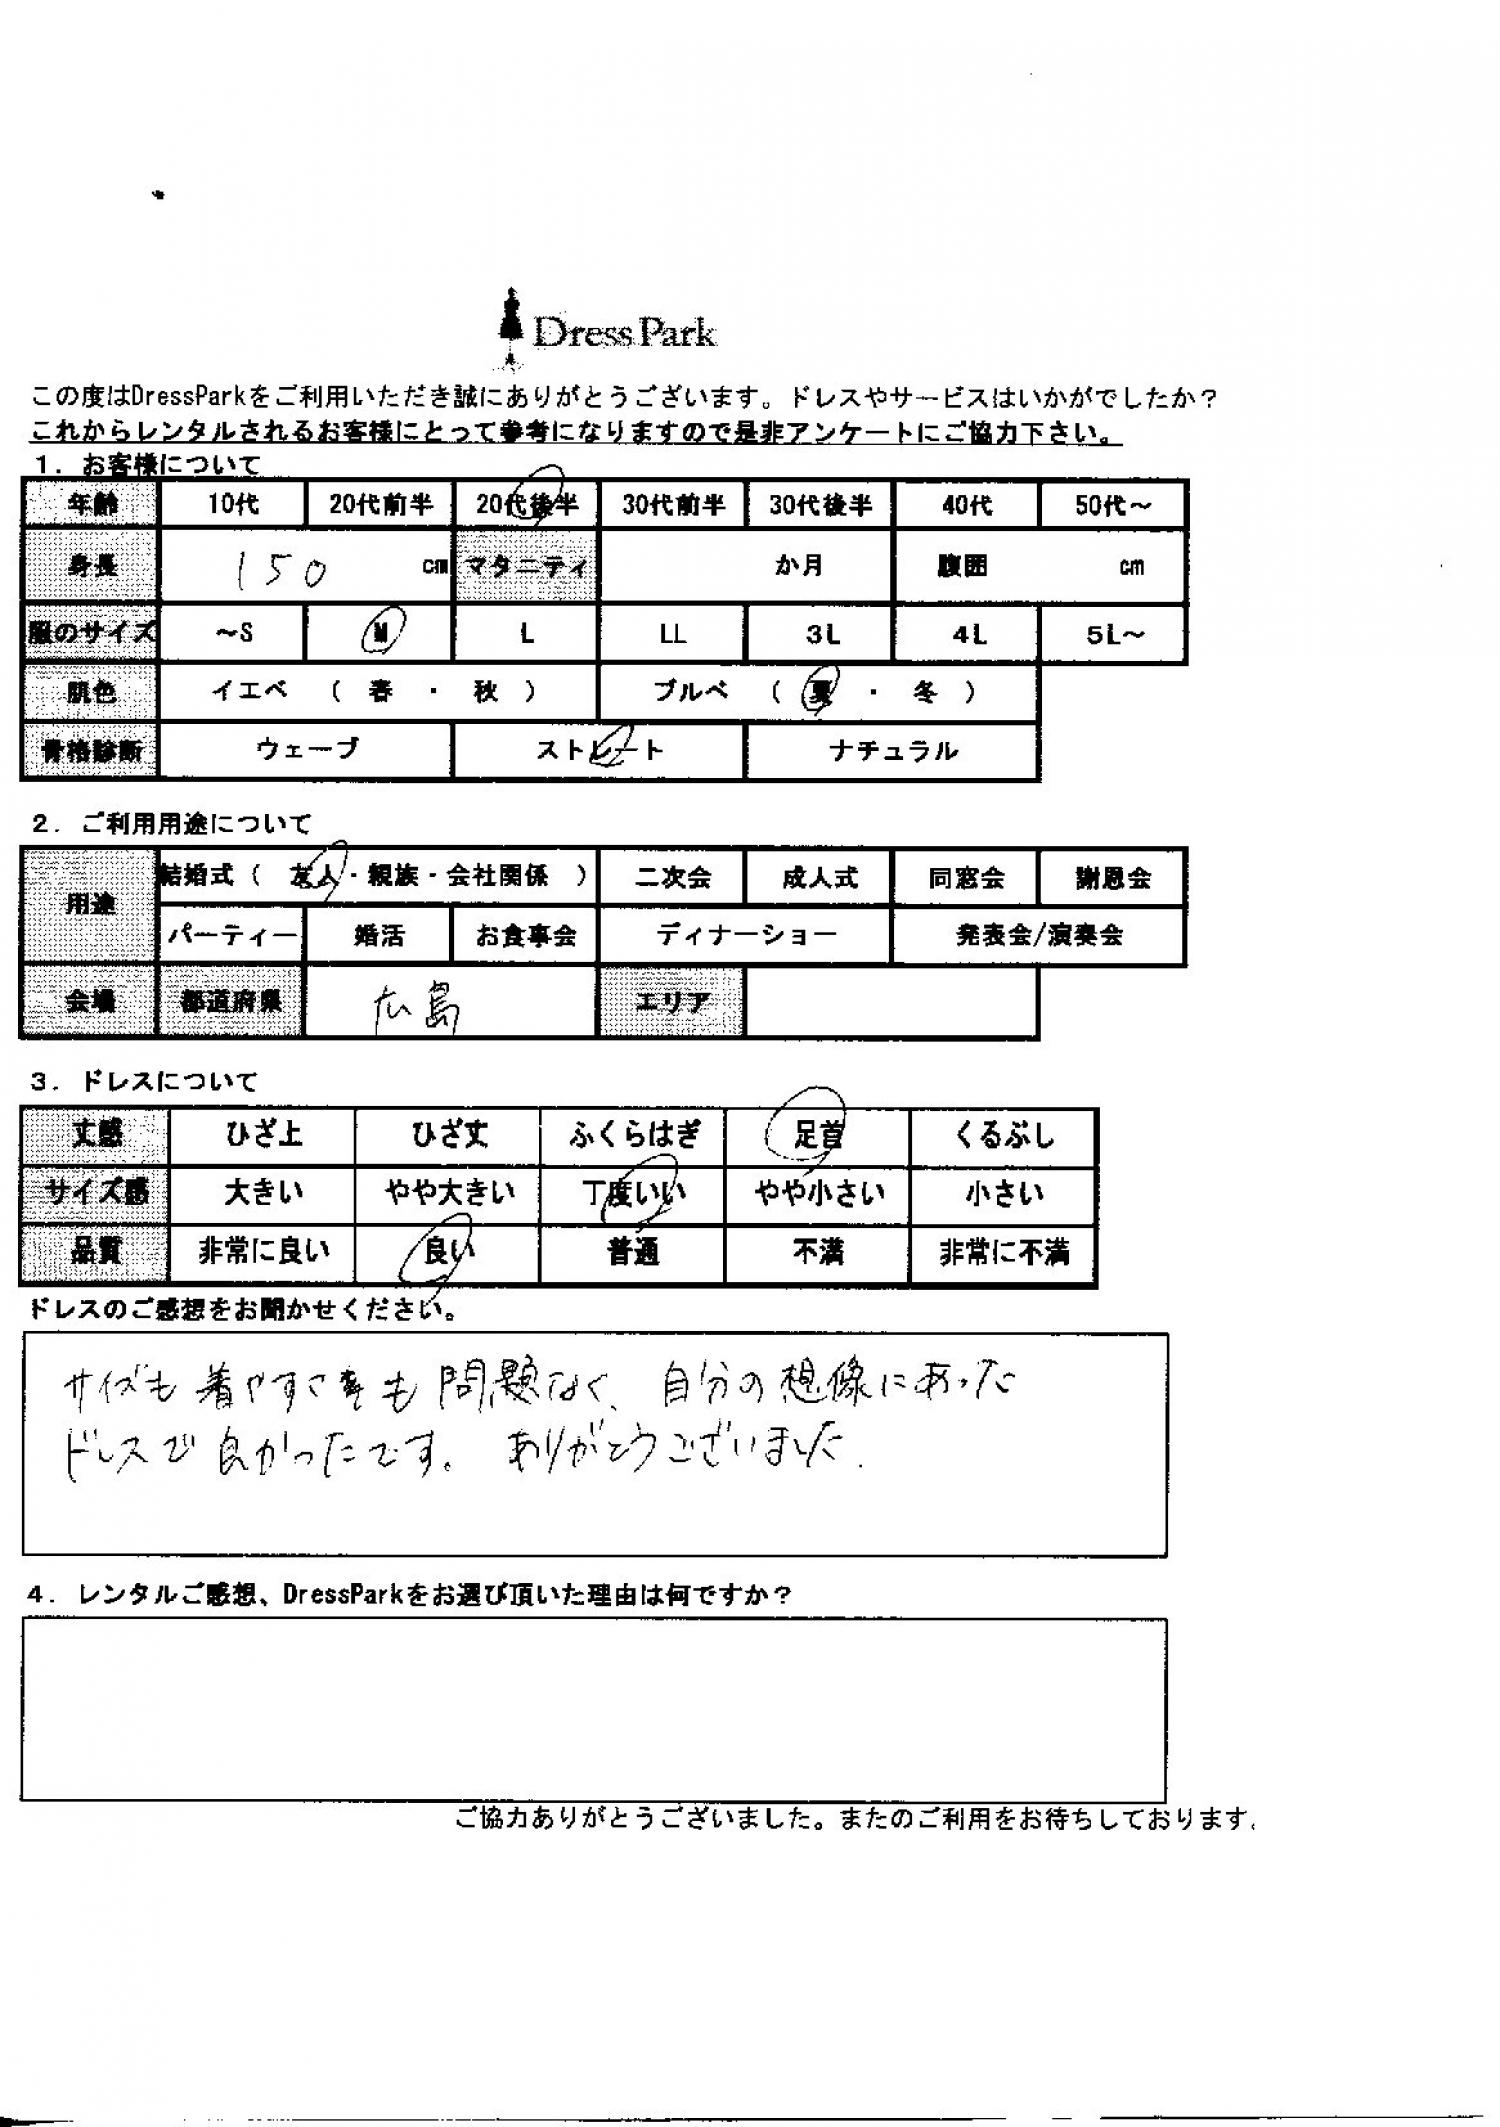 Dress Park
この度はDressParkをご利用いただき誠にありがとうございます。ドレスやサービスはいかがでしたか？
これからレンタルされるお客様にとって参考になりますので是非アンケートにご協力下さい。
1．お客様について
年齢 10代 20代前半 20代後半 30代前半 30代後半 40代 50代～
身長 150 cm マタニティ か月 腹囲 cm
服のサイズ ～S M L LL 3L 4L 5L～
肌色 イエベ （ 春 ・ 秋 ） ブルベ （ 夏 ・ 冬 ）
骨格診断 ウェーブ ストレート ナチュラル
2．ご利用用途について
用途 結婚式（ 友人・親族・会社関係 ） 二次会 成人式 同窓会 謝恩会
パーティー 婚活 お食事会 ディナーショー 発表会/演奏会
会場 都道府県 広島 エリア
3．ドレスについて
丈感 ひざ上 ひざ丈 ふくらはぎ 足首 くるぶし
サイズ感 大きい やや大きい 丁度いい やや小さい 小さい
品質 非常に良い 良い 普通 不満 非常に不満
ドレスのご感想をお聞かせください。
サイズも着やすさも問題なく、自分の想像にあった
ドレスで良かったです。ありがとうございました.
4．レンタルご感想、DressParkをお選び頂いた理由は何ですか？
ご協力ありがとうございました。またのご利用をお待ちしております。